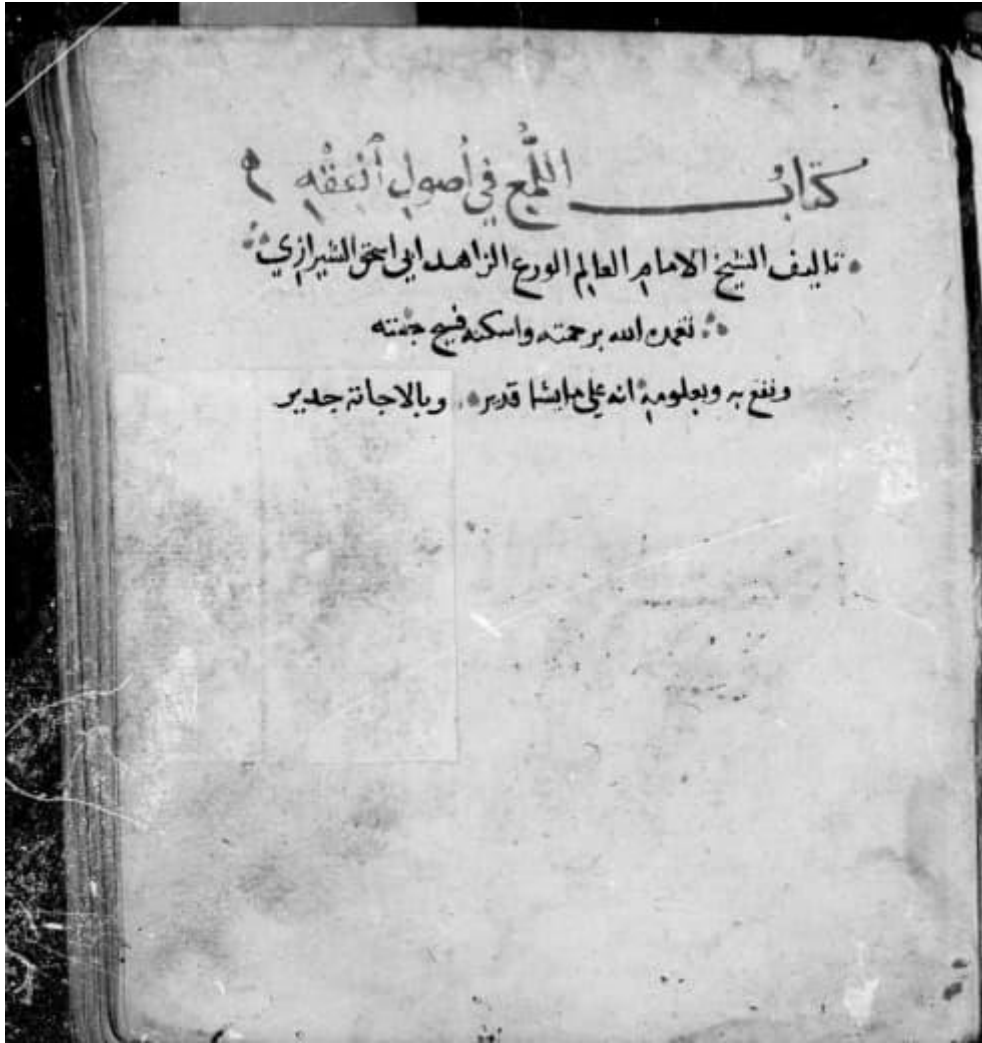 كتاب اللُّمَع في أصول الفقه
تاليف الشيخ الامام العالم الورع الزاهد ابي اسحق الشيرازي
تغمده الله برحمته واسكنه فسيح جنته
ونفع به وبعلومه انه على مايشا قدير وبالاجابة جدير